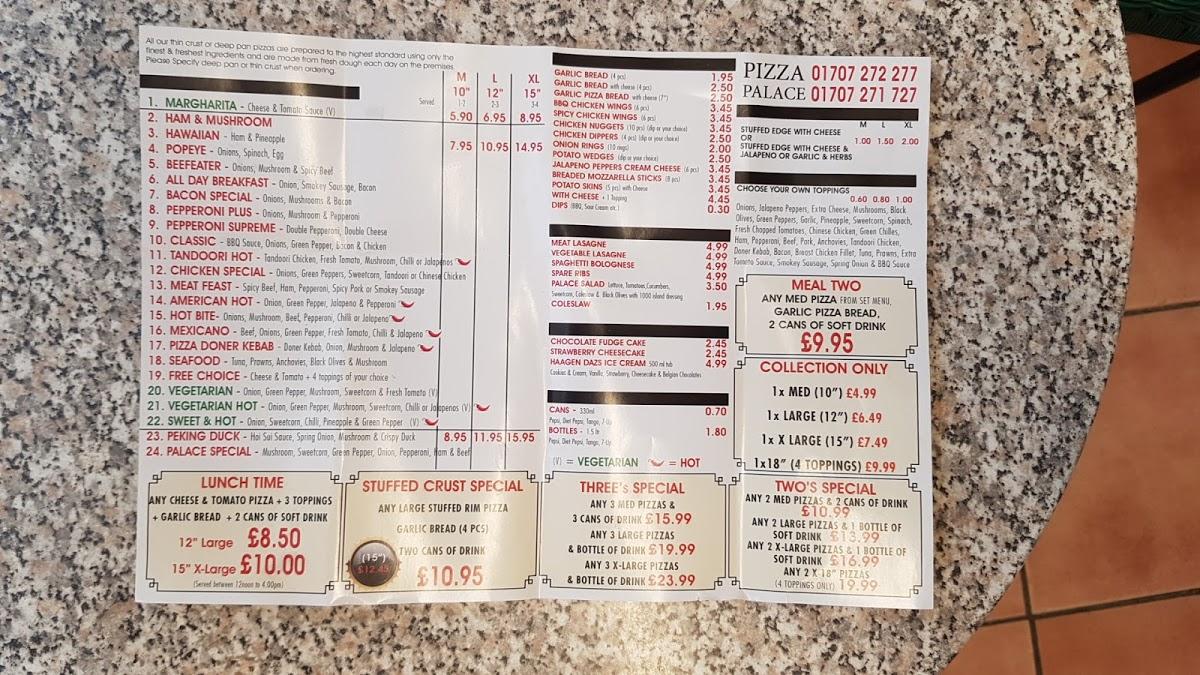 All our thin crust or deep pan pizzas are prepared to the highest standard using only the
finest & freshest ingredients and are made from fresh dough each day on the premises.
Please Specify deep pan or thin crust when ordering.
M L XL
10" 12" 15"
Served 1-2 2-3 3-4
1. MARGHARITA - Cheese & Tomato Sauce (V) 5.90 6.95 8.95
2. HAM & MUSHROOM
3. HAWAIIAN - Ham & Pineapple 7.95 10.95 14.95
4. POPEYE - Onions, Spinach, Egg
5. BEEFEATER - Onions, Mushrooms & Spicy Beef
6. ALL DAY BREAKFAST - Onion, Smokey Sausage, Bacon
7. BACON SPECIAL - Onions, Mushrooms & Bacon
8. PEPPERONI PLUS - Onions, Mushroom & Pepperoni
9. PEPPERONI SUPREME - Double Pepperoni, Double Cheese
10. CLASSIC - BBQ Sauce, Onions, Green Pepper, Bacon & Chicken
11. TANDOORI HOT - Tandoori Chicken, Fresh Tomato, Mushroom, Chilli or Jalapenos
12. CHICKEN SPECIAL - Onions, Green Peppers, Sweetcorn, Tandoori or Chinese Chicken
13. MEAT FEAST - Spicy Beef, Ham, Pepperoni, Spicy Pork or Smokey Sausage
14. AMERICAN HOT - Onion, Green Pepper, Jalapeno & Pepperoni
15. HOT BITE- Onions, Mushroom, Beef, Pepperoni, Chilli or Jalapeno
16. MEXICANO - Beef, Onions, Green Pepper, Fresh Tomato, Chilli & Jalapeno
17. PIZZA DONER KEBAB - Doner Kebab, Onion, Mushroom & Jalapeno
18. SEAFOOD - Tuna, Prawns, Anchovies, Black Olives & Mushroom
19. FREE CHOICE - Cheese & Tomato + 4 toppings of your choice
20. VEGETARIAN - Onion, Green Pepper, Mushroom, Sweetcorn & Fresh Tomato (V)
21. VEGETARIAN HOT - Onion, Green Pepper, Mushroom, Sweetcorn, Chilli or Jalapenos (V)
22. SWEET & HOT - Onion, Sweetcorn, Chilli, Pineapple & Green Pepper (V)
23. PEKING DUCK - Hoi Soi Sauce, Spring Onion, Mushroom & Crispy Duck 8.95 11.95 15.95
24. PALACE SPECIAL - Mushroom, Sweetcorn, Green Pepper, Onion, Pepperoni, Ham & Beef
GARLIC BREAD (4 pcs) 1.95
GARLIC BREAD with cheese (4 pcs) 2.50
GARLIC PIZZA BREAD with cheese (7") 2.50
BBQ CHICKEN WINGS (6 pcs) 3.45
SPICY CHICKEN WINGS (6 pcs) 3.45
CHICKEN NUGGETS (10 pcs) (dip or your choice) 3.45
CHICKEN DIPPERS (4 pcs) (dip or your choice) 2.50
ONION RINGS (10 rings) 2.00
POTATO WEDGES (dip or your choice) 2.50
JALAPENO PEPPERS CREAM CHEESE (6 pcs) 3.45
BREADED MOZZARELLA STICKS (8 pcs) 3.45
POTATO SKINS (5 pcs) with Cheese 3.45
WITH CHEESE + 1 Topping 4.45
DIPS (BBQ, Sour Cream etc.) 0.30
MEAT LASAGNE 4.99
VEGETABLE LASAGNE 4.99
SPAGHETTI BOLOGNESE 4.99
SPARE RIBS 4.99
PALACE SALAD Lettuce, Tomatoes,Cucumbers, 3.50
Sweetcorn, Coleslaw & Black Olives with 1000 island dressing
COLESLAW 1.95
CHOCOLATE FUDGE CAKE 2.45
STRAWBERRY CHEESECAKE 2.45
HAAGEN DAZS ICE CREAM 500 ml tub 4.99
Cookies & Cream, Vanilla, Strawberry, Cheesecake & Belgian Chocolates
CANS - 330ml 0.70
Pepsi, Diet Pepsi, Tango, 7-Up
BOTTLES - 1.5 ltr 1.80
Pepsi, Diet Pepsi, Tango, 7-Up
(V) = VEGETARIAN = HOT
PIZZA 01707 272 277
PALACE 01707 271 727
M L XL
STUFFED EDGE WITH CHEESE
OR 1.00 1.50 2.00
STUFFED EDGE WITH CHEESE &
JALAPENO OR GARLIC & HERBS
CHOOSE YOUR OWN TOPPINGS
0.60 0.80 1.00
Onions, Jalapeno Peppers, Extra Cheese, Mushrooms, Black
Olives, Green Peppers, Garlic, Pineapple, Sweetcorn, Spinach,
Fresh Chopped Tomatoes, Chinese Chicken, Green Chilles,
Ham, Pepperoni, Beef, Pork, Anchovies, Tandoori Chicken,
Doner Kebab, Bacon, Breast Chicken Fillet, Tuna, Prawns, Extra
Tomato Sauce, Smokey Sausage, Spring Onion & BBQ Sauce
MEAL TWO
ANY MED PIZZA FROM SET MENU,
GARLIC PIZZA BREAD,
2 CANS OF SOFT DRINK
£9.95
COLLECTION ONLY
1x MED (10") £4.99
1x LARGE (12") £6.49
1x X LARGE (15") £7.49
1x18" (4 TOPPINGS) £9.99
LUNCH TIME
ANY CHEESE & TOMATO PIZZA + 3 TOPPINGS
+ GARLIC BREAD + 2 CANS OF SOFT DRINK
12" Large £8.50
15" X-Large £10.00
(Served between 12noon to 4.00pm)
STUFFED CRUST SPECIAL
ANY LARGE STUFFED RIM PIZZA
GARLIC BREAD (4 PCS)
TWO CANS OF DRINK
(15")
£12.45
£10.95
THREE's SPECIAL
ANY 3 MED PIZZAS &
3 CANS OF DRINK £15.99
ANY 3 LARGE PIZZAS
& BOTTLE OF DRINK £19.99
ANY 3 X-LARGE PIZZAS
& BOTTLE OF DRINK £23.99
TWO'S SPECIAL
ANY 2 MED PIZZAS & 2 CANS OF DRINK
£10.99
ANY 2 LARGE PIZZAS & 1 BOTTLE OF
SOFT DRINK £13.99
ANY 2 X-LARGE PIZZAS & 1 BOTTLE OF
SOFT DRINK £16.99
ANY 2 X 18" PIZZAS
(4 TOPPINGS ONLY) 19.99